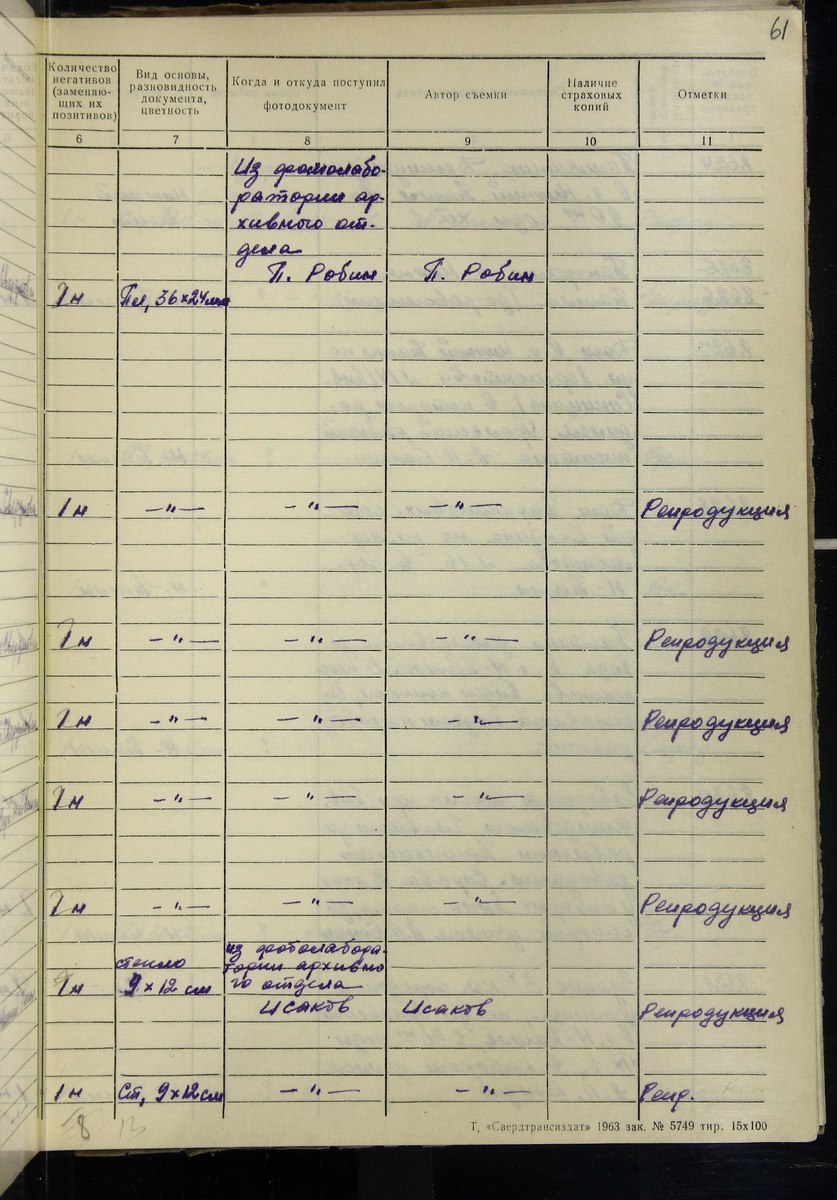 61
Количество негативов (заменяю- щих их позитивов)
Вид основы, разновидность документа, цветность
Когда и откуда поступил фотодокумент
Автор съемки
Наличие страховых копий
Отметки
6 7 8 9 10 11
Из фотолабо-
ратории ар-
хивного от-
дела
П. Робин П. Робин
1 н Пл, 36×24 мм
1 н —"— —"— —"— Репродукция
1 н —"— —"— —"— Репродукция
1 н —"— —"— —"— Репродукция
1 н —"— —"— —"— Репродукция
1 н —"— —"— —"— Репродукция
из фотолабора-
стекло тории архивно-
1 н 9×12 см го отдела
Исаков Исаков Репродукция
1 н Ст, 9×12 см —"— —"— Репр.
8
Т, «Свердтрансиздат» 1963 зак. № 5749 тир. 15х100